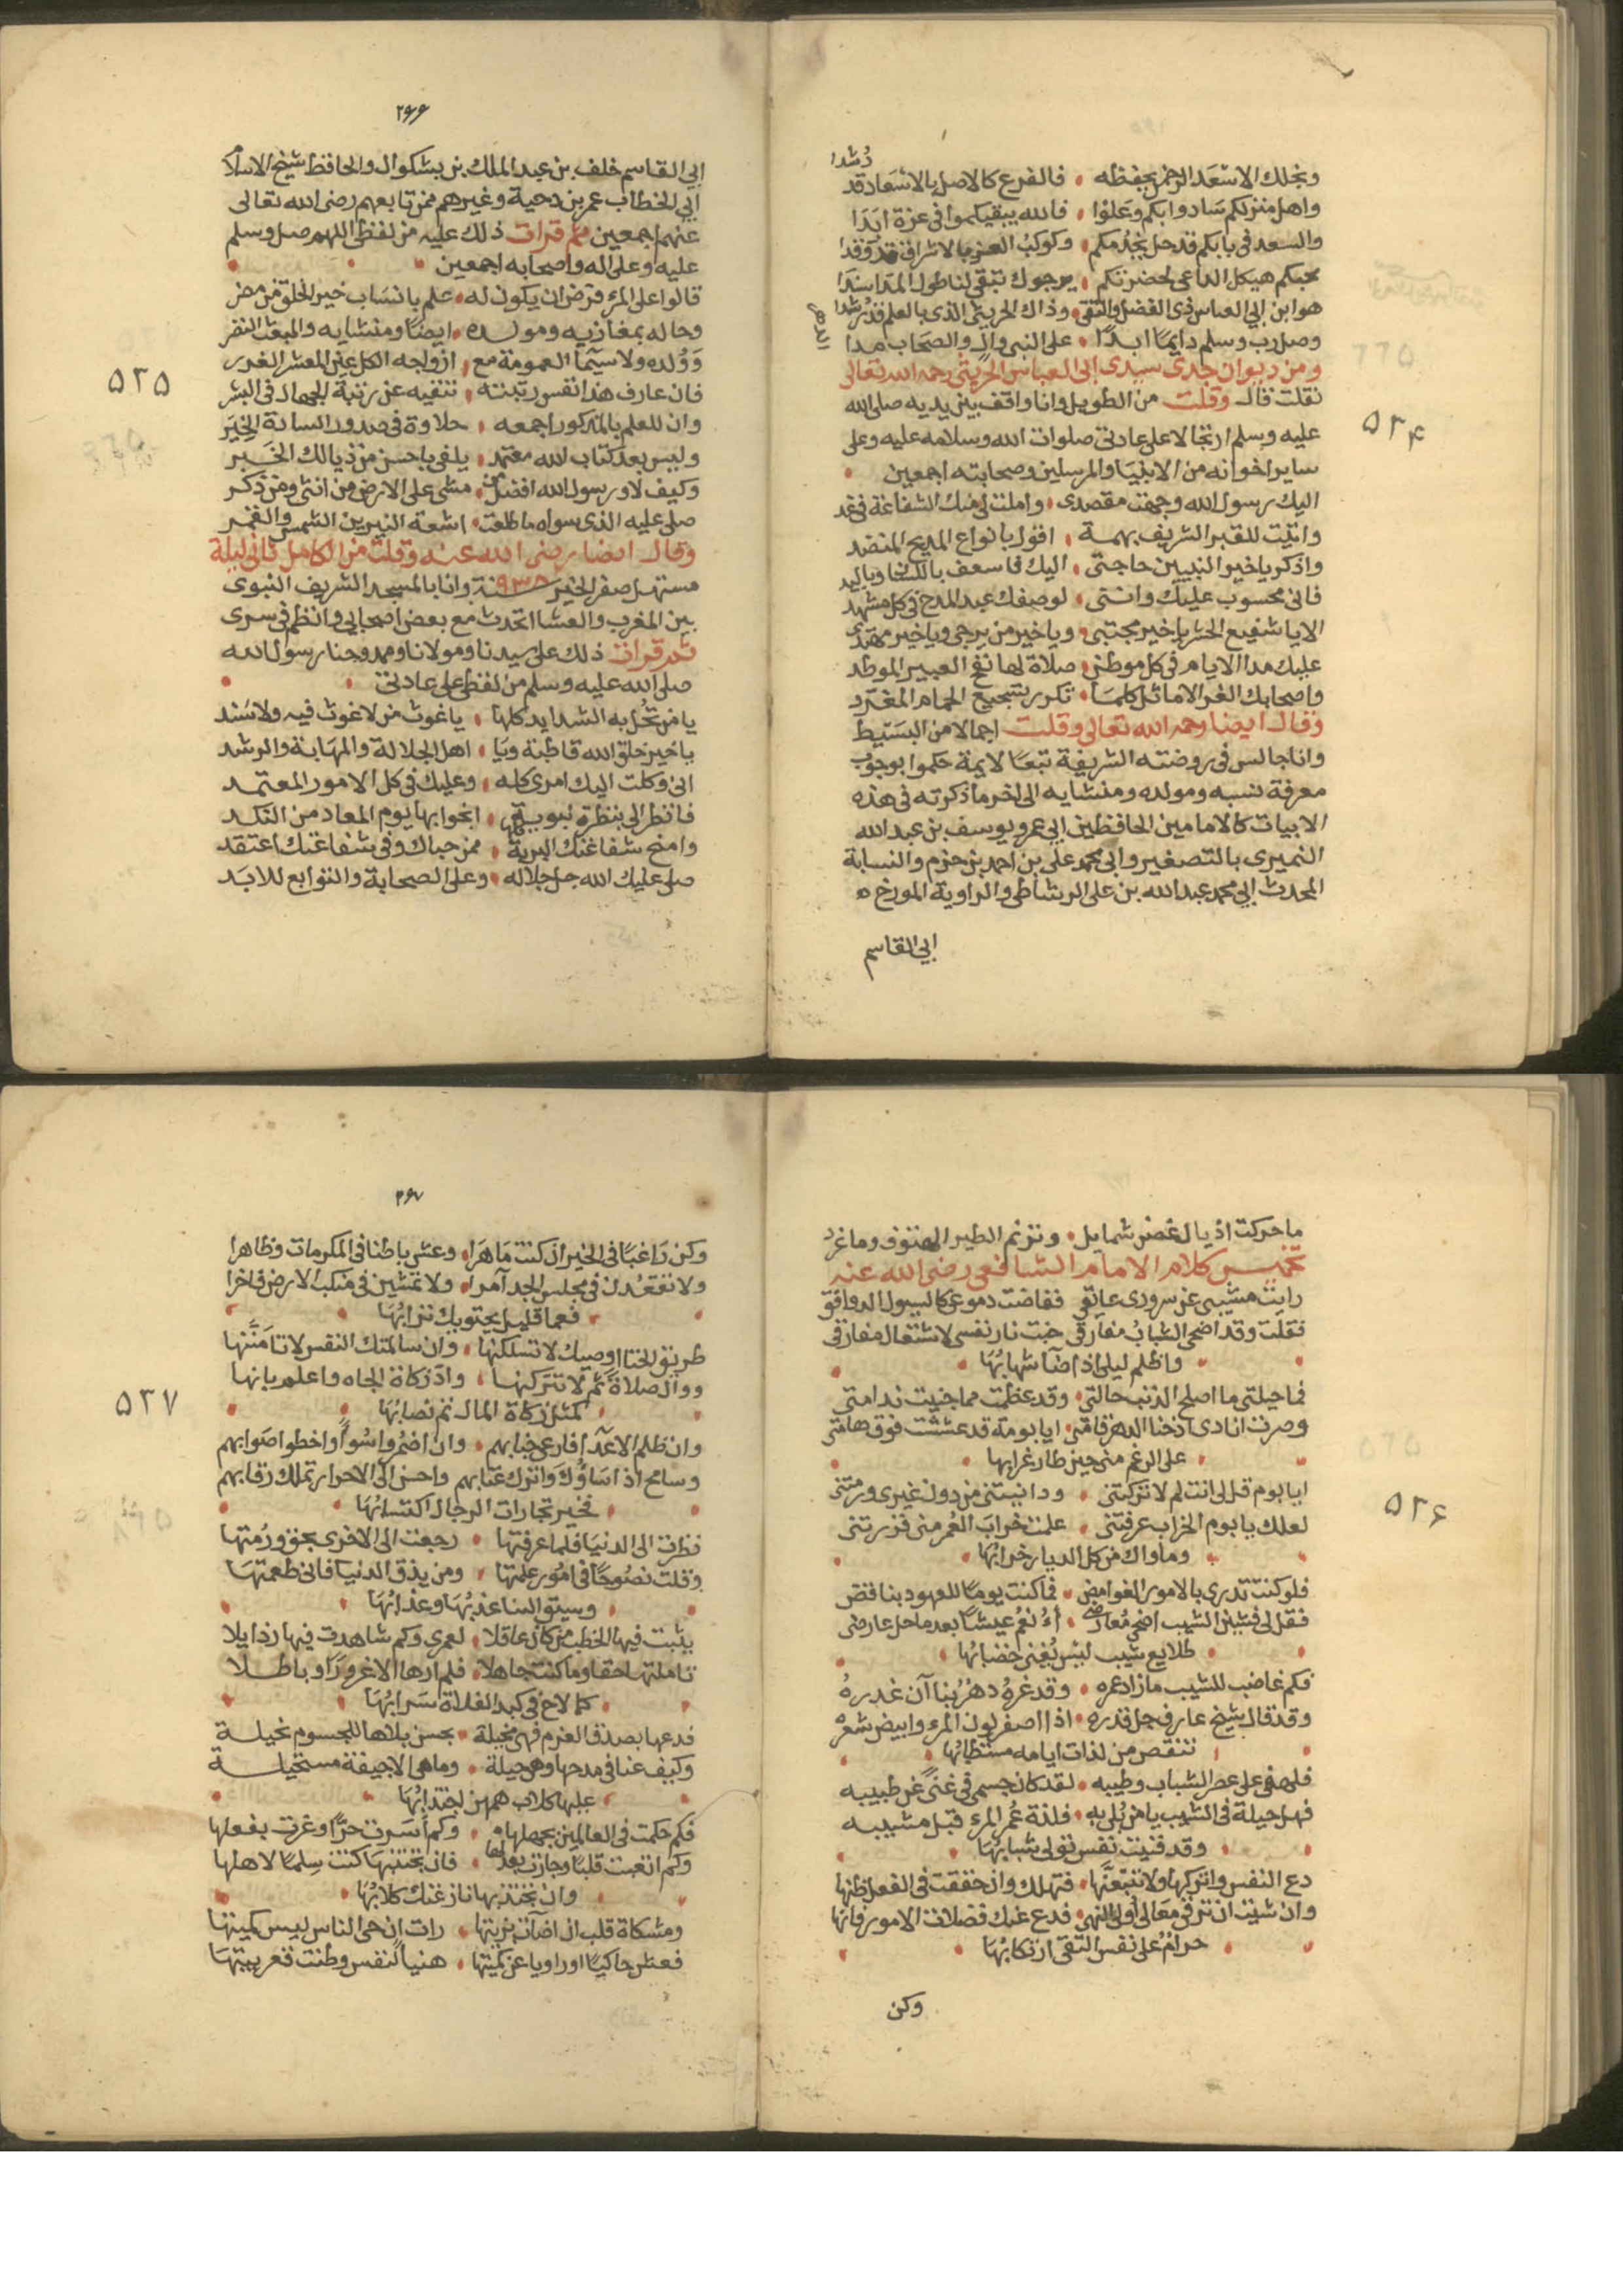 رشدا
ونجلك الاسعد الرحمن يحفظه فالفرع كالاصل بالاسعاد قد
واهل منزلكم سادوا بكم وعلوا فالله يبقيكموا في عزة ابدا
والسعد في بابكم قد حل يخدمكم وكوكب العز بالاشراق قد وقدا
محبكم هيكل الداعي لحضرتكم يرجوك تبقى لنا طول المدا سندا
هو ابن ابي العباس ذي الفضل والتقى وذاك الحريثي الذي بالعلم قد رشدا
وصل رب وسلم دايما ابدا على النبي وال والصحاب مدا
ومن ديوان جدي سيدي ابي العباس الحريثي رحمه الله تعالى
نقلت قال وقلت من الطويل وانا واقف بين يديه صلى الله
عليه وسلم ارتجالا على عادتي صلوات الله وسلامه عليه وعلى
ساير اخوانه من الانبيا والمرسلين وصحابته اجمعين
اليك رسول الله وجهت مقصدي واملت لي منك الشفاعة في غد
واتيت للقبر الشريف بهمة اقول بانواع المديح المنضد
واذكر يا خير النبيين حاجتي اليك فاسعف
فاني محسوب عليك وانني لوصفك عبد المدح في كل مشهد
الا يا شفيع الحشر يا خير مجتبى ويا خير من يرجى ويا خير مهتدى
عليك مدا الايام في كل موطن صلاة لها نفح العبير الموطد
واصحابك الغر الاماثل كلما تكرر تسجيع الحمام المغرد
وقال ايضا رحمه الله تعالى وقلت اجمالا من البسيط
وانا جالس في روضته الشريفة تبعا لايمة حكموا بوجوب
معرفة نسبه ومولده ومنشايه الى اخر ما ذكرته في هذه
الابيات كالامامين الحافظين ابي عمرو يوسف بن عبد الله
النميري بالتصغير وابي محمد علي بن احمد بن حزم والنسابة
المحدث ابي محمد عبد الله بن علي الرشاطي والراوية المورخ
ابي القاسم
٥٢٤
٢٦٦
ابي القاسم خلف بن عبد الملك بن بشكوال والحافظ شيخ الاسلام
ابي الخطاب عمر بن دحية وغيرهم ممن تابعهم رضي الله تعالى
عنهم اجمعين ثم قرات ذلك عليه من لفظي اللهم صل وسلم
عليه وعلى اله واصحابه اجمعين
قالوا على المرء فرض ان يكون له علم بانساب خير الخلق من مضر
وحاله بمغازيه ومولده ايضا ومنشايه والمبعث النضر
وولده ولا سيما العمومة مع ازواجه الكل عين المعشر الغرر
فان عارف هذا نفس رتبته تنقيه عن رتبة الجهال في البشر
وان للعلم بالمذكور اجمعه حلاوة في صدور السادة الخير
وليس بعد كتاب الله معتمد يلفى باحسن من ذيالك الخبر
وكيف لا ورسول الله افضل من مشى على الارض من انثى ومن ذكر
صلى عليه الذي سواه ما طلعت اشعة النيرين الشمس والقمر
وقال ايضا رضي الله عنه وقلت من الكامل ثاني ليلة
مستهل صفر الخير سنة ٩٣٨ وانا بالمسجد الشريف النبوي
بين المغرب والعشا اتحدث مع بعض اصحابي وانظم في سري
ثم قرات ذلك على سيدنا ومولانا وممدوحنا رسول الله
صلى الله عليه وسلم من لفظي على عادتي
يا من تحل به الشدايد كلها يا غوث من لا غوث فيه ولا سند
يا خير خلق الله قاطبة ويا اهل الجلالة والمهابة والرشد
اني وكلت اليك امري كله وعليك في كل الامور المعتمد
فانظر الي بنظرة نبوية انجوا بها يوم المعاد من النكد
وامنح شفاعتك البرية كلها ممن حباك وفي شفاعتك اعتقد
صلى عليك الله جل جلاله وعلى الصحابة والتوابع للابد
٥٢٥
ما حركت اذيال غصن شمايل وترنم الطير الهتوف وما غرد
تخميس كلام الامام الشافعي رضي الله عنه
رايت مشيبي عن سروري عايقي ففاضت دموعي كالسيول الدوافق
فقلت وقد اضحى الشباب مفارقي خبت نار نفسي لاشتعال مفارقي
واظلم ليلي اذ اضا شهابها
فما حيلتي ما اصلح الذنب حالتي وقد عظمت مما جنيت ندامتي
وصرت انادي اذ حنا الدهر قامتي ايا بومة قد عششت فوق هامتي
على الرغم مني حين طار غرابها
ايا بوم قل لي انت لم لا تركتني ودانيتني من دون غيري ورمتني
لعلك يا بوم الخراب عرفتني علمت خراب العمر مني فزرتني
وماواك من كل الديار خرابها
فلو كنت تدري بالامور الغوامض فما كنت يوما للعهود بناقض
فقل لي فشين الشيب اضحى معارضي اانعم عيشا بعد ما حل عارضي
طلايع شيب ليس يغني خضابها
فكم غاضب للشيب ما زاد عمره وقد غره دهر بنا آن غدره
وقد قال شيخ عارف جل قدره اذا اصفر لون المرء وابيض شعره
تنقص من لذات ايامه مستطابها
فلهفي على عصر الشباب وطيبه لقد كان جسمي في غنى عن طبيبه
فهل حيلة في الشيب يا من بلي به فلذة عمر المرء قبل مشيبه
وقد فنيت نفس تولى شبابها
دع النفس واتركها ولا تتبعنها فتهلك وان حققت في الفعل ظنها
وان شيت ان ترقى معالي اولي النهى فدع عنك فضلات الامور فانها
حرام على نفس التقي ارتكابها
وكن
٥٢٦
٢٦٧
وكن راغبا في الخير ان كنت ماهرا وعش باطنا في المكرمات وظاهرا
ولا تقعدن في مجلس الجد آمرا ولا تمشين في منكب الارض فاخرا
فعما قليل يحتويك ترابها
طريق الخنا اوصيك لا تسلكنها وان سالمتك النفس لا تامننها
ووال صلاة ثم لا تتركنها واد زكاة الجاه واعلم بانها
كمثل زكاة المال تم نصابها
وان ظلم الاعدا فارعى جنابهم وان اضمروا سوا واخطوا صوابهم
وسامح اذا ساؤك واترك عتابهم واحسن الى الاحرار تملك رقابهم
فخير تجارات الرجال اكتسابها
نظرت الى الدنيا فلما عرفتها رجعت الى الاخرى بحق ورمتها
وقلت نصوحا في امور علمتها ومن يذق الدنيا فاني طعمتها
وسيق الينا عذبها وعذابها
يثبت فيها الخطب من كان عاقلا لعمري وكم شاهدت فيها رذايلا
تاملتها حقا وما كنت جاهلا فلم ارها الا غرورا وباطلا
كما لاح في كبد الفلاة سرابها
فدعها بصدق العزم فهي مخيلة بحسن بلاها للجسوم نحيلة
وكيف عنا في مدحها وهي حيلة وما هي الا جيفة مستحيلة
عليها كلاب همهن اجتذابها
فكم حكمت في العالمين بجهلها وكم اسرت حرا وغرت بفعلها
وكم اتعبت قلبا وجازت بعدلها فان تجتنبها كنت سلما لاهلها
وان تجتذبها نازعتك كلابها
ومشكاة قلب ان اضات بزيتها رات ان حي الناس ليس كميتها
فعش حاكيا او راويا عن كميتها هنيا لنفس وطنت قعر بيتها
٥٢٧